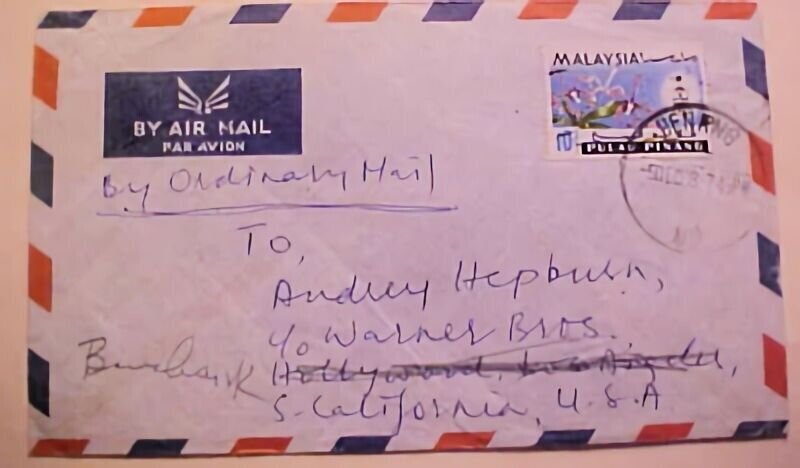 BY AIR MAIL
PAR AVION
MALAYSIA
PULAU PINANG
By Ordinary Mail
To,
Audrey Hepburn,
c/o Warner Bros.,
Burbank Hollywood, Los Angeles,
S. California, U.S.A